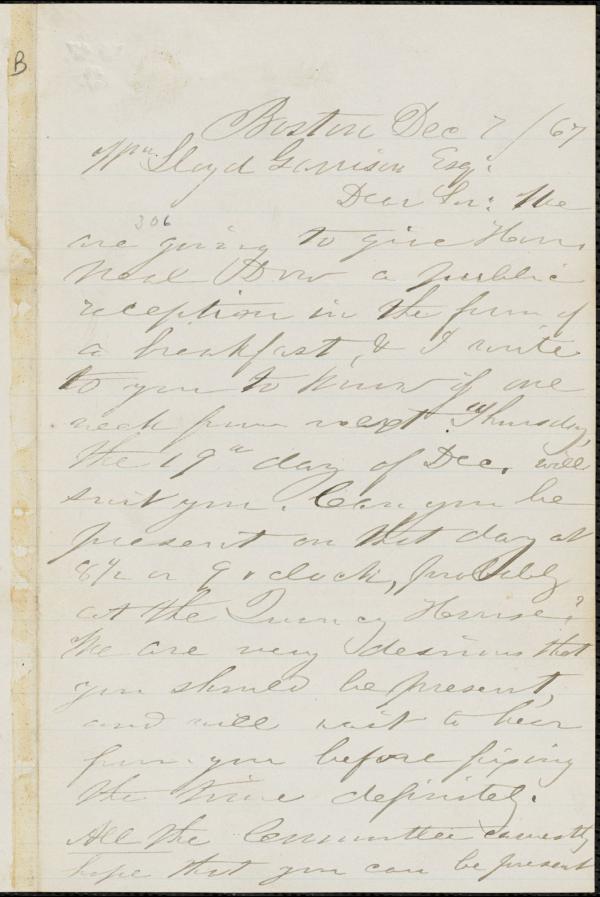 B
Boston Dec 7/67
Wm Lloyd Garrison Esqr.
Dear Sir: We
306
are going to give Hon.
Neal Dow a public
reception in the form of
a breakfast, & I write
to you to know if one
week from next Thursday,
the 19th day of Dec. will
suit you. Can you be
present on that day at
8½ or 9 o'clock, probably
at the Quincy House?
We are very desirous that
you should be present,
and will wait to hear
from you before fixing
the time definitely.
All the Committee earnestly
hope that you can be present